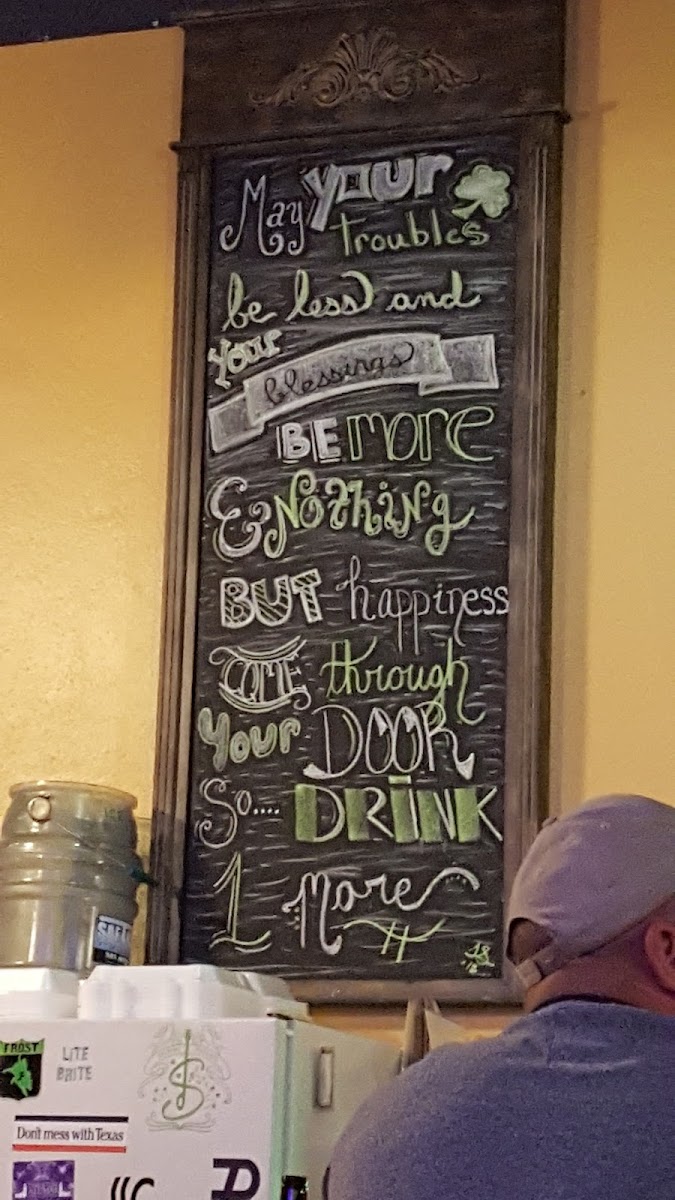 May YOUR
troubles
be less and
Your
blessings
BE more
& NOThiNg
BUT happiness
COME through
Your DOOR
So.... DRINK
1 More
FROST
LITE
BRITE
Don't mess with Texas